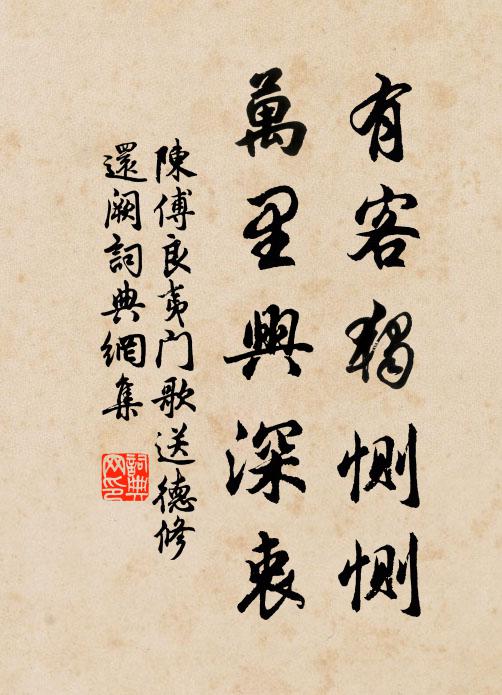 有客獨惻惻
萬里興深衷
陳傅良夷門歌送德修
還闕詞典網集
詞典网印